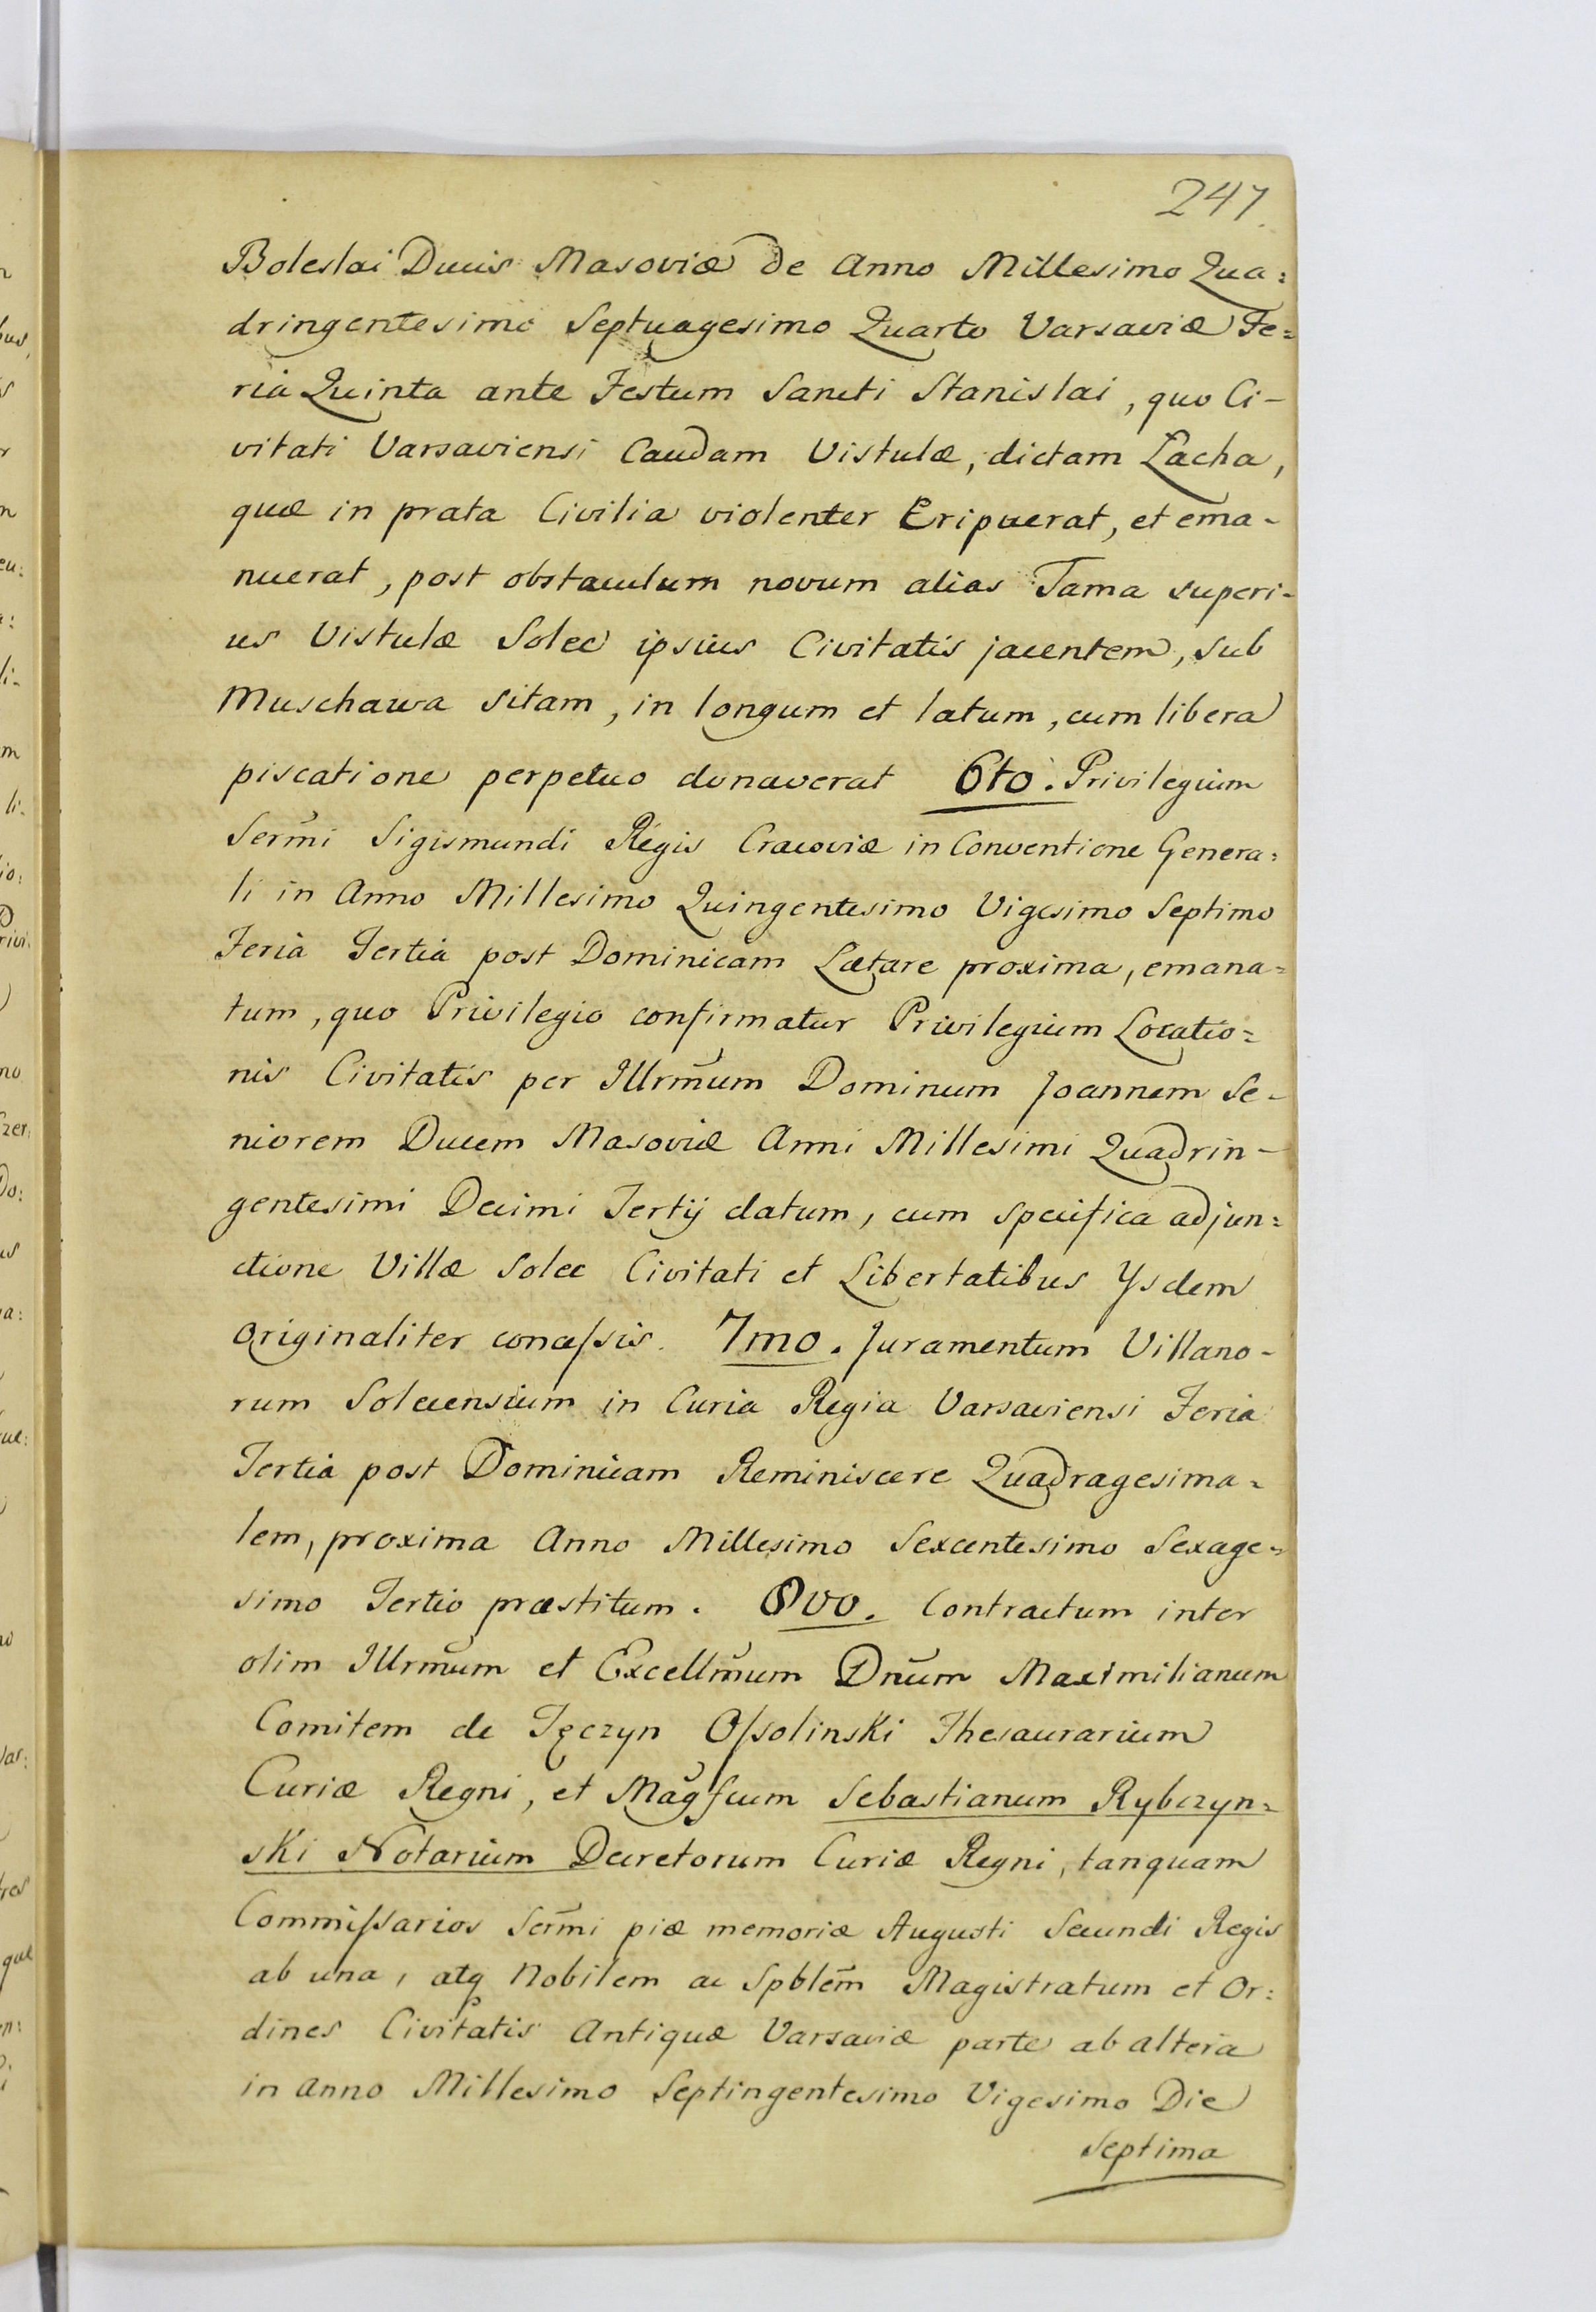 247.
Boleslai Ducis Masoviæ de Anno Millesimo Qua:
dringentesimo Septuagesimo Quarto Varsaviæ Fe:
ria Quinta ante Festum Sancti Stanislai, quo Ci-
vitati Varsaviensi Caudam Vistulæ, dictam Łacha,
quæ in prata Civilia violenter Eripuerat, et ema-
nuerat, post obstaculum novum alias Tama superi-
us Vistulæ Solec ipsius Civitatis jacentem, sub
Muschawa sitam, in longum et latum, cum libera
piscatione perpetuo donaverat 6to. Privilegium
Serm̃i Sigismundi Regis Cracoviæ in Conventione Genera:
li in Anno Millesimo Quingentesimo Vigesimo Septimo
Feria Tertia post Dominicam Lætare proxima, emana=
tum, quo Privilegio confirmatur Privilegium Locatio=
nis Civitatis per Illrm̃um Dominum Joannem Se-
niorem Ducem Masoviæ Anni Millesimi Quadrin-
gentesimi Decimi Tertij datum, cum specifica adjun=
ctione Villæ Solec Civitati et Libertatibus Ysdem
originaliter conceſsis. 7mo. Juramentum Villano-
rum Solecensium in Curia Regia Varsaviensi Feria
Tertia post Dominicam Reminiscere Quadragesima=
lem, proxima Anno Millesimo Sexcentesimo Sexage=
simo Tertio præstitum. 8vo. Contractum inter
olim Illrm̃um et Excellm̃um Dñum Maximilianum
Comitem de Tęczyn Oſsolinski Thesaurarium
Curiæ Regni, et Magfcum Sebastianum Rybczyn=
ski Notarium Decretorum Curiæ Regni, tanquam
Commiſsarios Serm̃i piæ memoriæ Augusti Secundi Regis
ab una, atq Nobilem ac Spblem̃ Magistratum et Or:
dines Civitatis Antiquæ Varsaviæ parte ab altera
in Anno Millesimo Septingentesimo Vigesimo Die
Septima